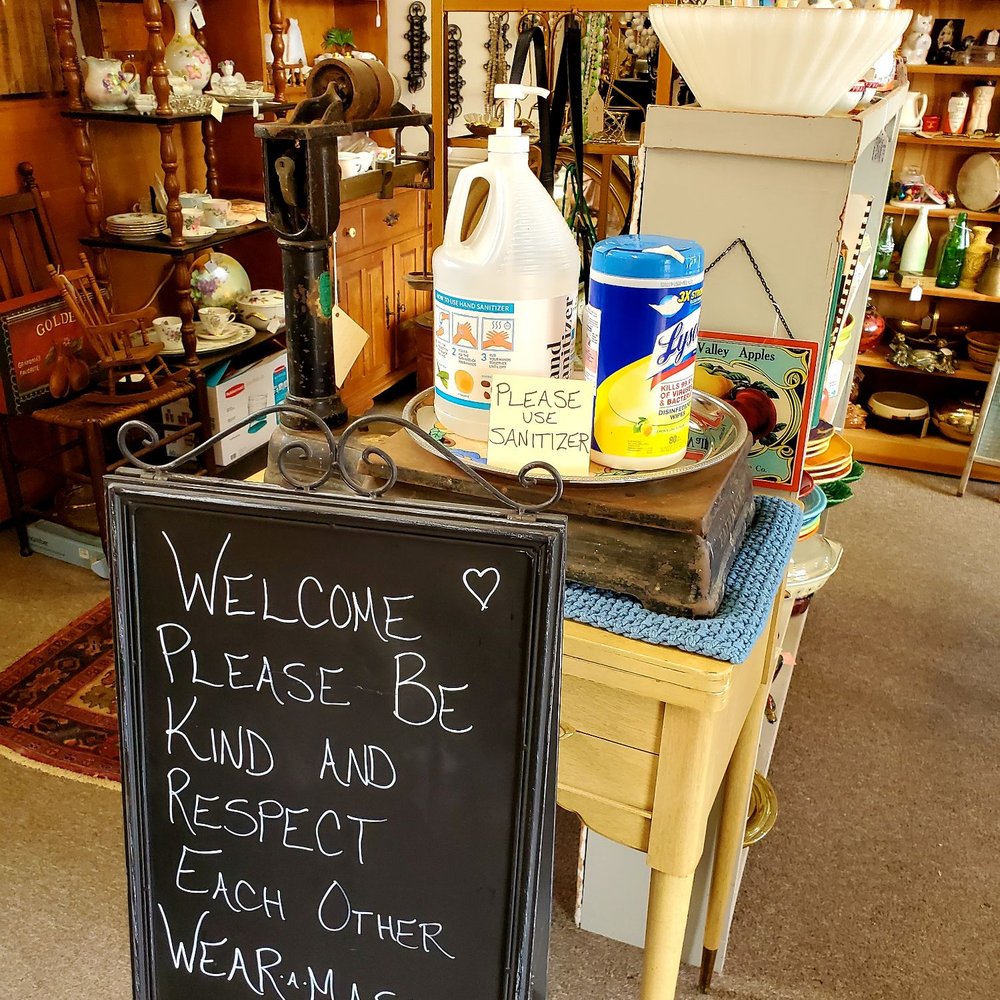 WELCOME
PLEASE BE
KIND AND
RESPECT
EACH OTHER
WEAR·A·MAS
PLEASE
USE
SANITIZER
HOW TO USE HAND SANITIZER
2
3
Sanitizer
3X
Lysol
KILLS 99.9%
OF VIRUSES
& BACTERIA
DISINFECTING
WIPES
80
Valley Apples
Co.
GOLDE